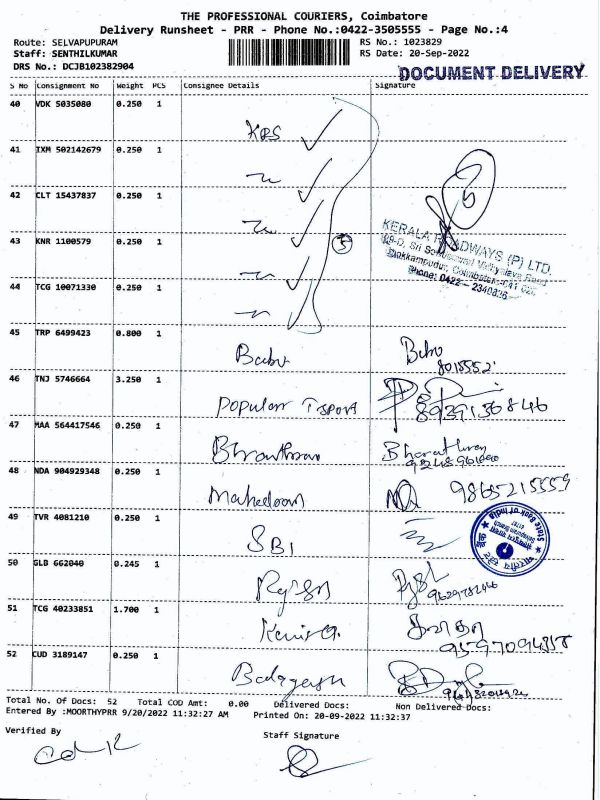 THE PROFESSIONAL COURIERS, Coimbatore
Delivery Runsheet - PRR - Phone No.:0422-3505555 - Page No.:4
Route: SELVAPUPURAM
RS No.: 1023829
Staff: SENTHILKUMAR
RS Date: 20-Sep-2022
DRS No.: DCJB102382904
DOCUMENT DELIVERY
S No Consignment No Weight PCS Consignee Details Signature
40 VDK 5035080 0.250 1
KRS
41 IXM 502142679 0.250 1
42 CLT 15437837 0.250 1
43 KNR 1100579 0.250 1
5
KERALA ROADWAYS (P) LTD.
Phone: 0422 -
44 TCG 10071330 0.250 1
45 TRP 6499423 0.800 1
Babu
Babu
46 TNJ 5746664 3.250 1
Popular Tsport
8939136846
47 MAA 564417546 0.250 1
Bharathwan
48 NDA 904929348 0.250 1
9865215559
49 TVR 4081210 0.250 1
SBI
State Bank of India
50 GLB 662040 0.245 1
51 TCG 40233851 1.700 1
9597094858
52 CUD 3189147 0.250 1
Total No. Of Docs: 52 Total COD Amt: 0.00 Delivered Docs: Non Delivered Docs:
Entered By :MOORTHYPRR 9/20/2022 11:32:27 AM Printed On: 20-09-2022 11:32:37
Verified By
Staff Signature